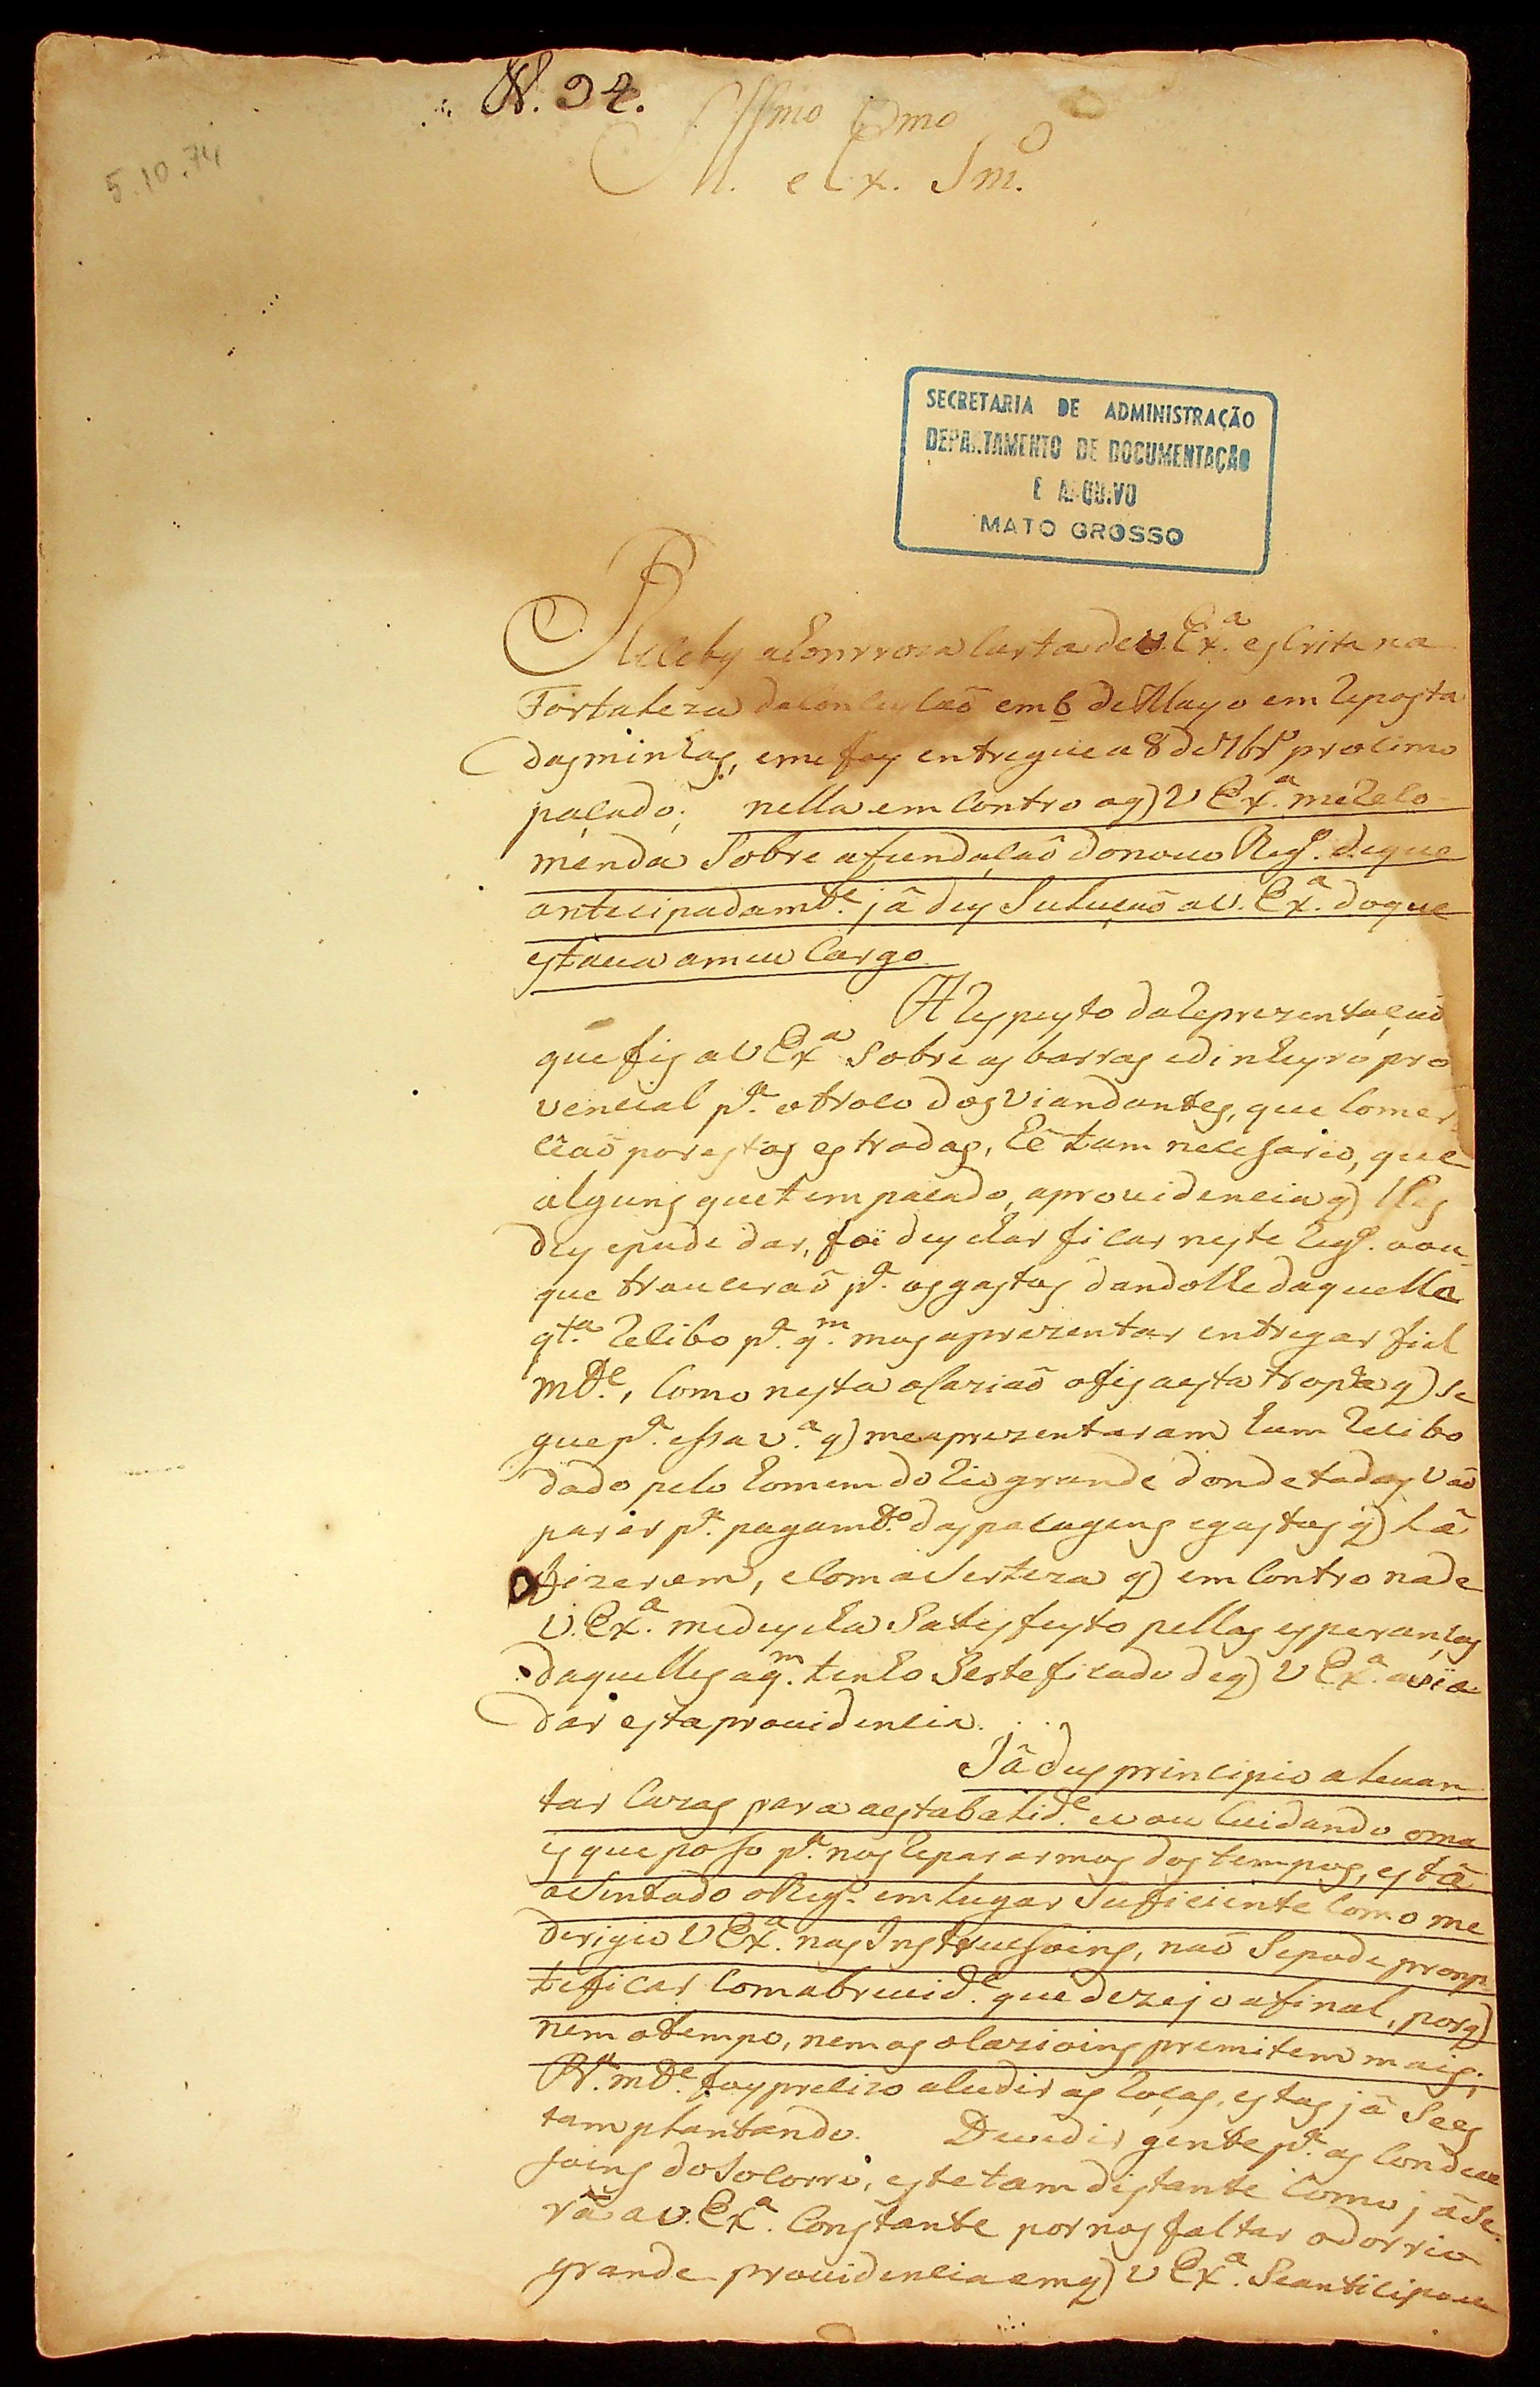 N. 94.
5.10.74
Ill.mo e Ex.mo Sm.º
SECRETARIA DE ADMINISTRAÇÃO
DEPARTAMENTO DE DOCUMENTAÇÃO
E ARQUIVO
MATO GROSSO
Receby a honrroza Carta de V. Ex.ª escrita na
Fortaleza da Conceyçaõ em 6 de Mayo em reposta
das minhas, eme foy entregue a 8 de 7br.º procimo
paçado; nella em Contro aq) V Ex.ª me reco
menda Sobre afundaçaõ donovo Reg.º deque
antecipadam.te jâ dey Soluçaõ a V. Ex.ª doque
estava ameu Cargo
A respeyto da reprezentaçaõ
que fis a V Ex.ª Sobre as barras edinheyro pro
vencial p.ª o troco dos Viandantes, que Comer
ceaõ por estas estradas, hê tam necesario, que
alguns que tem pacado, aprouidencia q) lhes
dey epude dar, foi deychar ficar neste reg.º oou
que trouceraõ p.ª os gastos dandolhe daquella
qt.ª recibo p.ª q.m mos aprezentar entregar fiel
m.te, Como nesta ocaziaõ ofis aesta tropa q) se
gue p.ª essa V.ª q) me aprezentaram hum recibo
dado pelo homem do rio grande donde todos Vaõ
parar p.ª pagam.to das pasagens egastos q) lâ
fizerem, eComa Serteza q) em Contro nade
V. Ex.ª medeycha Satisfeyto pellas esperanças
daquelles aq.m tenho Sertificado deq) V Ex.ª avia
dar esta prouidencia.
Jâ dey principio a leuan
tar Cazas para a estabalid.e e vou Cuidando oma
is que poso p.ª nos repararmos dos tempos, estâ
asentado o Reg.º em lugar Suficiente Como me
dirigio V Ex.ª nas Instrusoins, naõ Sepode promp
teficar Comabreuid.e que dezejo afinal, porq)
nem otempo, nem as ocazioins premitem mais;
m.te foy precizo acudir as roças, estas jâ Sees
tam plantando. Deuedir gente p.ª as Condu
soins doSocorro, este tam distante Como jâ Se
râ a V. Ex.ª Constante por nos faltar odorrio
grande prouidencia emq) V Ex.ª Seanticipou